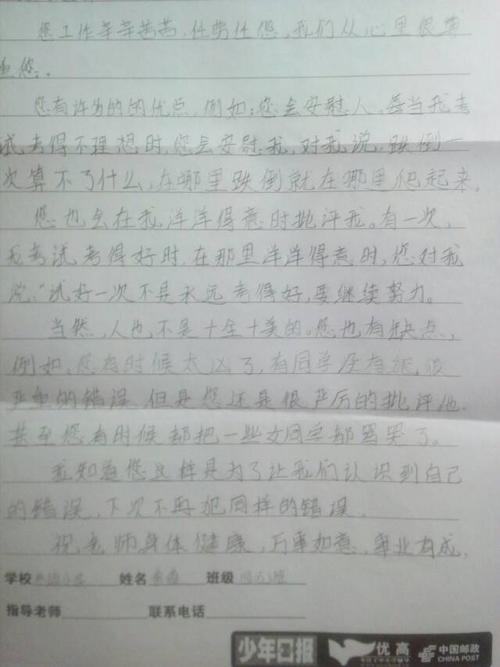 您工作辛辛苦苦,任劳任怨,我们从心里很尊
重您。
您有许多的的优点,例如:您会安慰人,每当我考
试考得不理想时,您会安慰我,对我说,跌倒一
次算不了什么,在哪里跌倒就在哪里爬起来。
您也会在我洋洋得意时批评我。有一次,
我考试考得好时,在那里洋洋得意时,您对我
说:“试好一次不是永远考得好,要继续努力。
当然,人也不是十全十美的。您也有缺点,
例如,您有时候太凶了,有同学没有
严重的错误,但是您还是很严厉的批评他
甚至您有时候都把一些女同学都骂哭了。
我知道您这样是为了让我们认识到自己
的错误,下次不再犯同样的错误。
祝老师身体健康,万事如意,事业有成。
学校 姓名 班级
指导老师 联系电话
少年日报 优高 中国邮政
CHINA POST